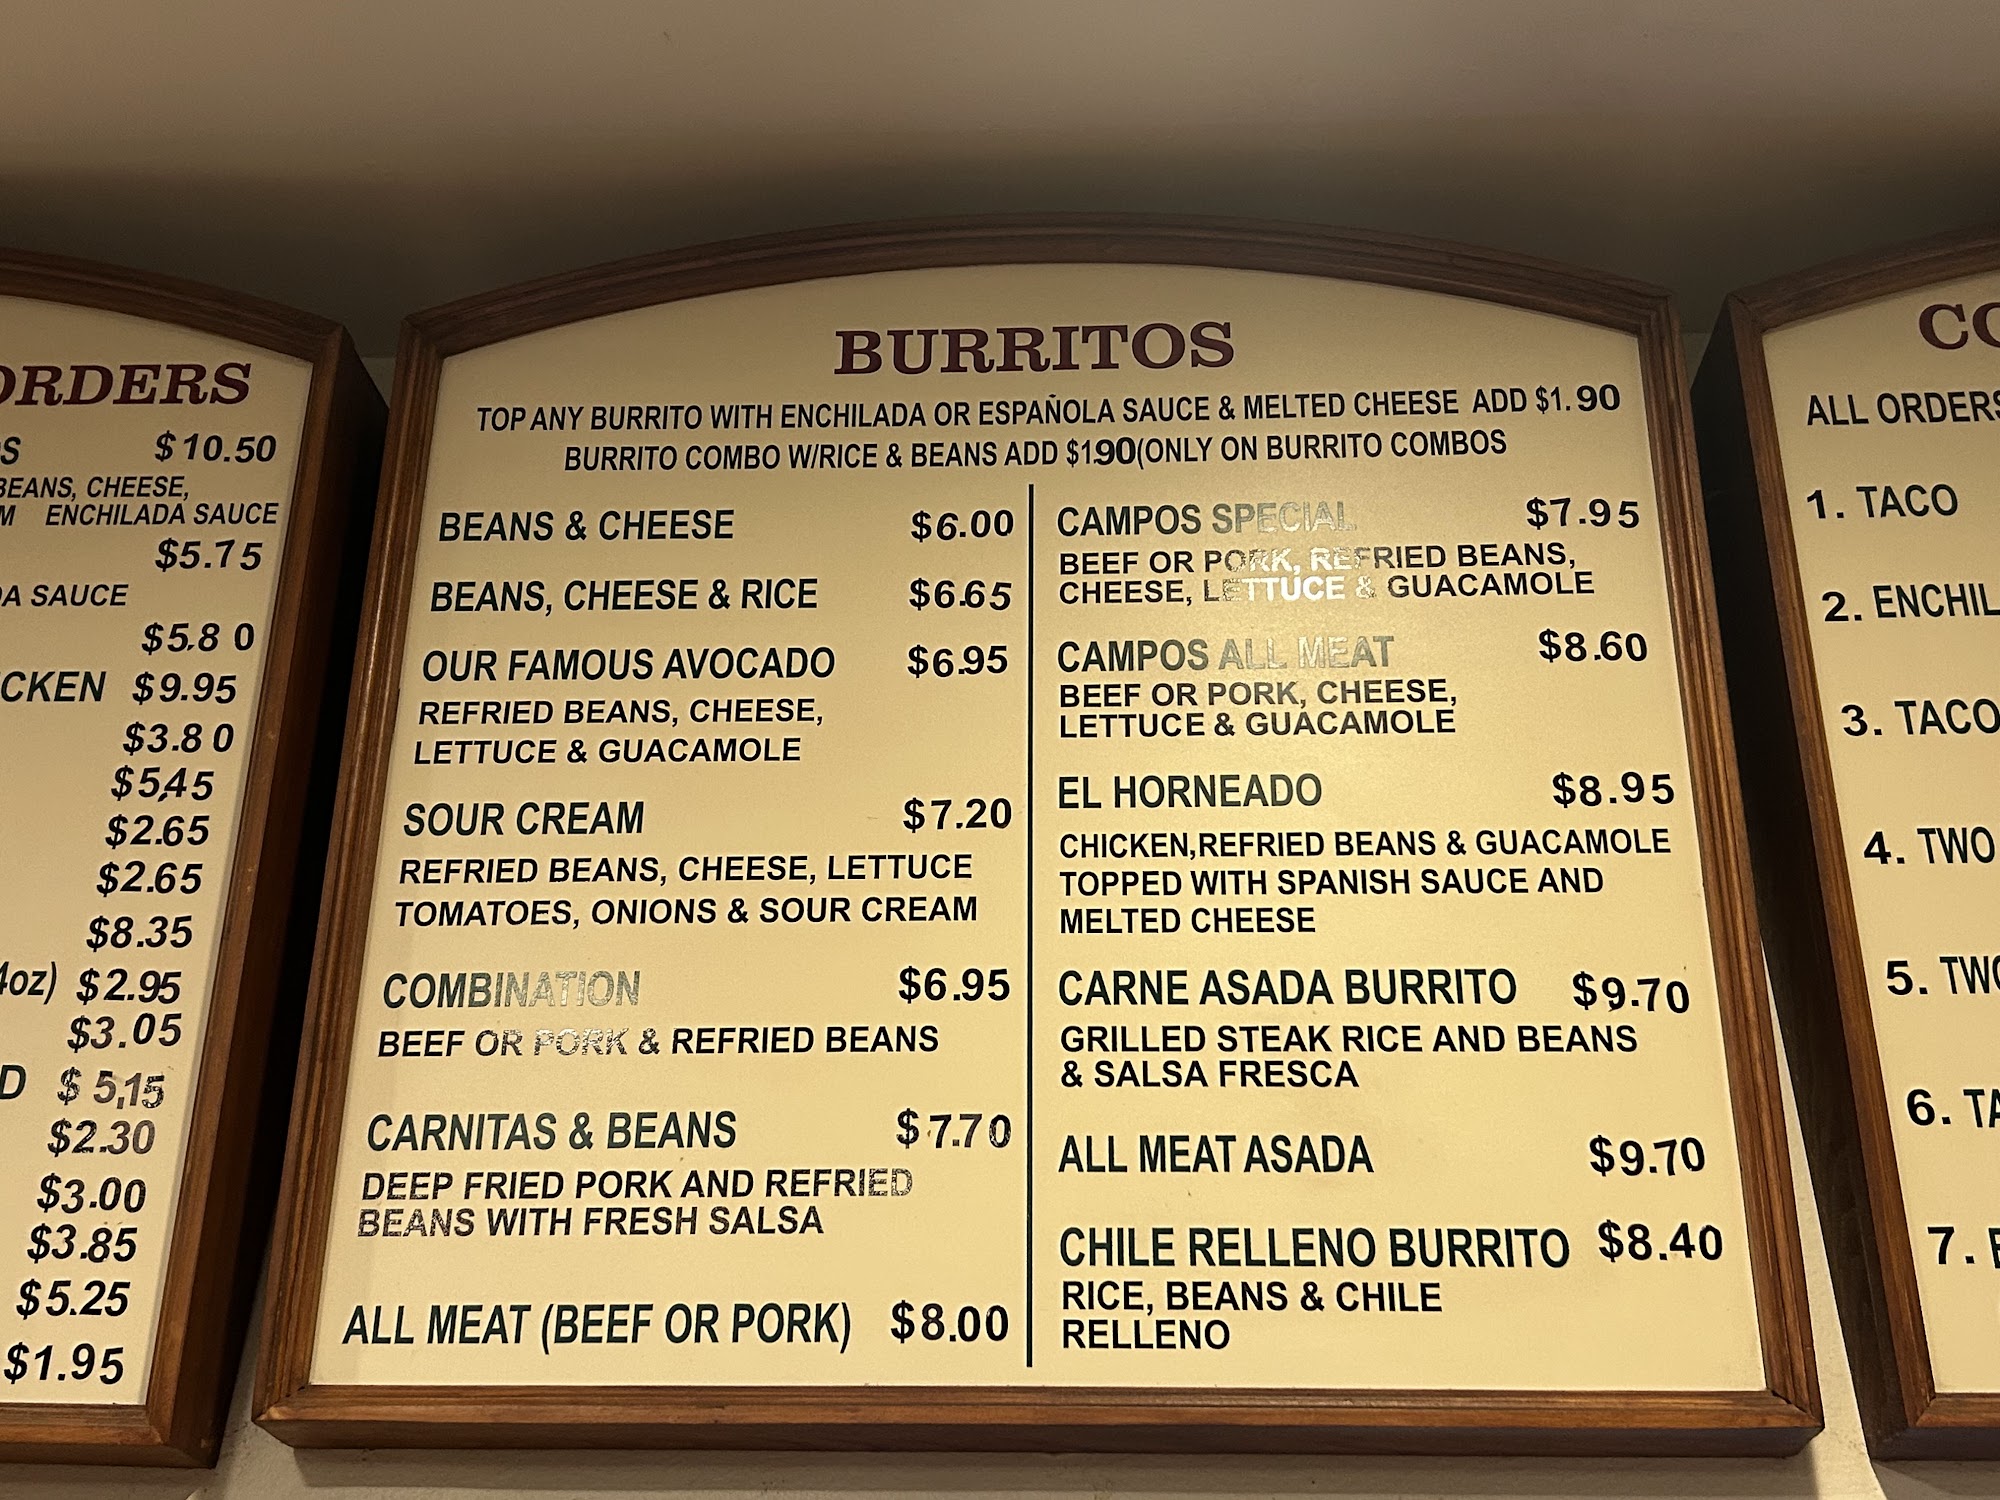 ORDERS
$10.50
BEANS, CHEESE,
ENCHILADA SAUCE
$5.75
SAUCE
$5.80
$9.95
$3.80
$5,45
$2.65
$2.65
$8.35
$2.95
$3.05
$5,15
$2.30
$3.00
$3.85
$5.25
$1.95
BURRITOS
TOP ANY BURRITO WITH ENCHILADA OR ESPAÑOLA SAUCE & MELTED CHEESE ADD $1.90
BURRITO COMBO W/RICE & BEANS ADD $1.90(ONLY ON BURRITO COMBOS
BEANS & CHEESE $6.00
BEANS, CHEESE & RICE $6.65
OUR FAMOUS AVOCADO $6.95
REFRIED BEANS, CHEESE,
LETTUCE & GUACAMOLE
SOUR CREAM $7.20
REFRIED BEANS, CHEESE, LETTUCE
TOMATOES, ONIONS & SOUR CREAM
COMBINATION $6.95
BEEF OR PORK & REFRIED BEANS
CARNITAS & BEANS $7.70
DEEP FRIED PORK AND REFRIED
BEANS WITH FRESH SALSA
ALL MEAT (BEEF OR PORK) $8.00
CAMPOS SPECIAL $7.95
BEEF OR PORK, REFRIED BEANS,
CHEESE, LETTUCE & GUACAMOLE
CAMPOS ALL MEAT $8.60
BEEF OR PORK, CHEESE,
LETTUCE & GUACAMOLE
EL HORNEADO $8.95
CHICKEN,REFRIED BEANS & GUACAMOLE
TOPPED WITH SPANISH SAUCE AND
MELTED CHEESE
CARNE ASADA BURRITO $9.70
GRILLED STEAK RICE AND BEANS
& SALSA FRESCA
ALL MEAT ASADA $9.70
CHILE RELLENO BURRITO $8.40
RICE, BEANS & CHILE
RELLENO
ALL ORDERS
1. TACO
2.
3. TACO
4. TWO
5. TWO
6.
7.